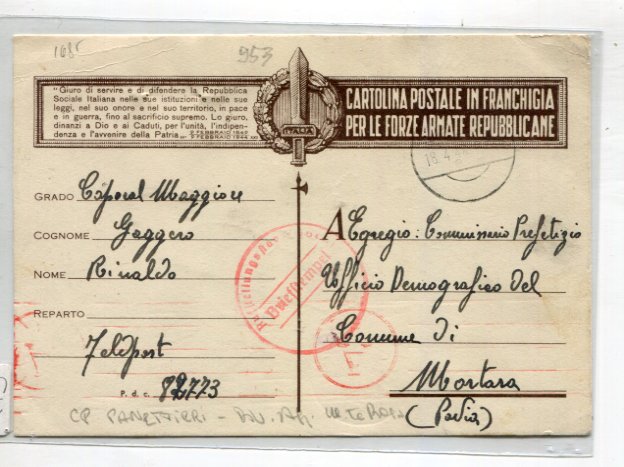 1685
953
"Giuro di servire e di difendere la Repubblica
Sociale Italiana nelle sue istituzioni e nelle sue
leggi, nel suo onore e nel suo territorio, in pace
e in guerra, fino al sacrificio supremo. Lo giuro,
dinanzi a Dio e ai Caduti, per l'unità, l'indipen-
denza e l'avvenire della Patria
ITALIA
CARTOLINA POSTALE IN FRANCHIGIA
PER LE FORZE ARMATE REPUBBLICANE
GRADO Caporal Maggiore
COGNOME Gaggero
NOME Rinaldo
REPARTO
Feldpost
P. d. c. 82773
A Egregio: Commissario Prefetizio
Ufficio Demografico del
Comune di
Mortara
(Pavia)
Briefstempel
CP PANETTIERI - DIV. Alp. M.te Rosa